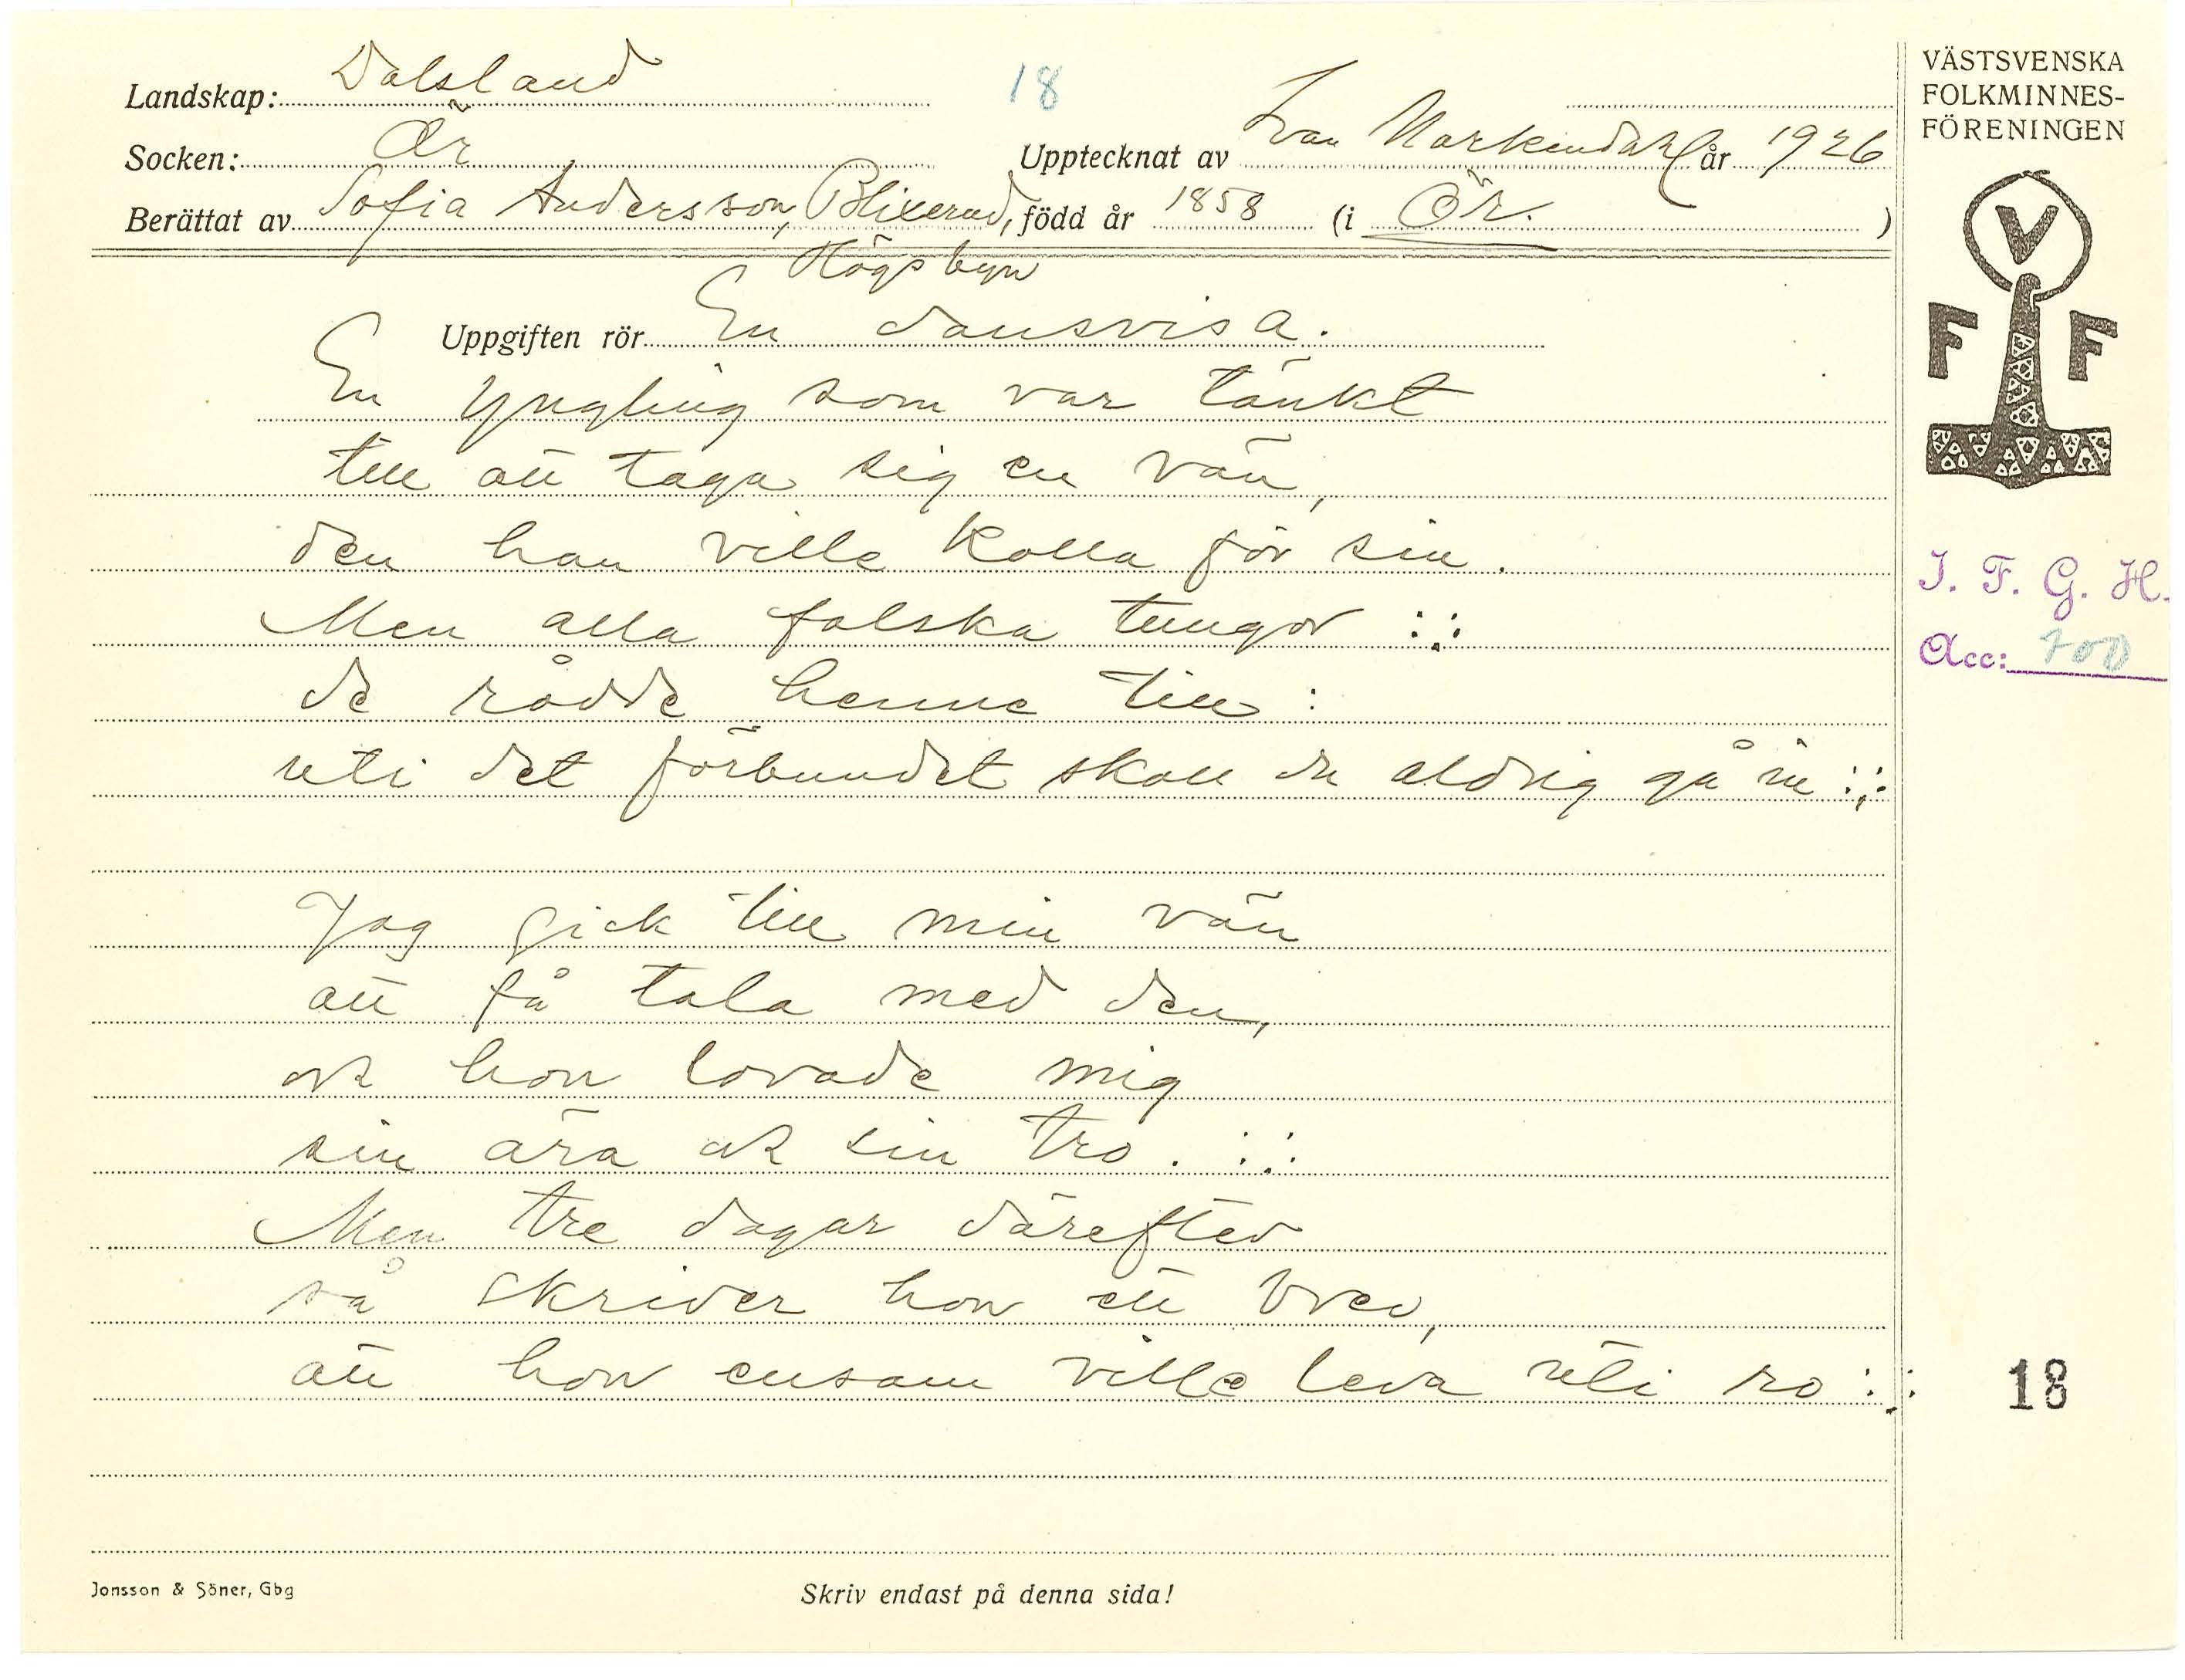 Landskap: Dalsland
18
Socken: Ör
Upptecknat av Ivar Markendahl år 1926
Berättat av Sofia Andersson, Blixerud, född år 1858 (i Ör. )
Högsbyn
Uppgiften rör En dansvisa.
En yngling som var tänkt
till att taga sig en vän,
den han ville kalla för sin.
Men alla falska tungor :;:
de rådde henne till :
uti det förbundet skall du aldrig gå in :;:
Jag gick till min vän
att få tala med den,
ock hon lovade mig
sin ära ock sin tro. :;:
Men tre dagar därefter
så skriver hon ett brev,
att hon ensam ville leva uti ro :;:
Jonsson & Söner, Gbg
Skriv endast på denna sida!
VÄSTSVENSKA
FOLKMINNES-
FÖRENINGEN
V
F F
I. F. G. H.
Acc: 700
18